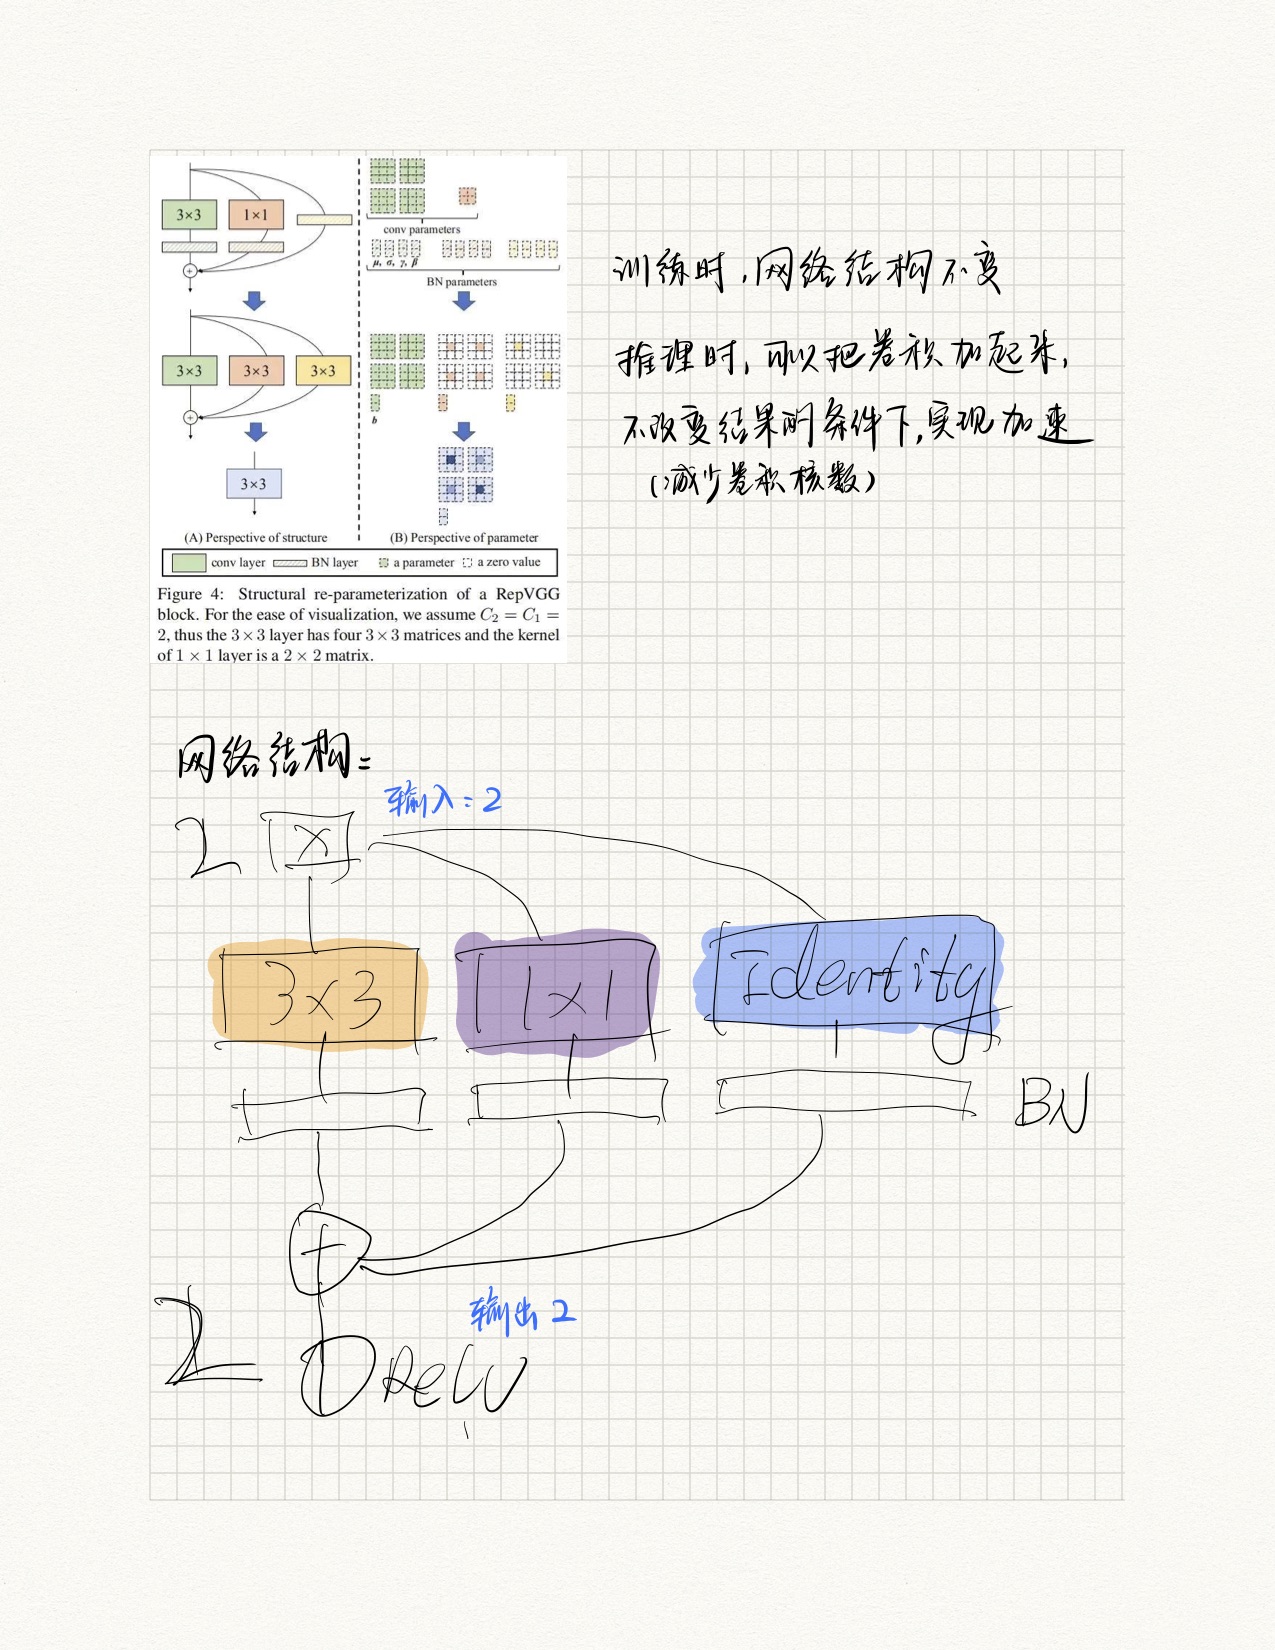 3×3
1×1
conv parameters
μ, σ, γ, β
BN parameters
3×3
3×3
3×3
b
3×3
(A) Perspective of structure
(B) Perspective of parameter
conv layer
BN layer
a parameter
a zero value
Figure 4: Structural re-parameterization of a RepVGG
block. For the ease of visualization, we assume C₂ = C₁ =
2, thus the 3×3 layer has four 3×3 matrices and the kernel
of 1 × 1 layer is a 2 × 2 matrix.
训练时,网络结构不变
推理时,可以把卷积加起来,
不改变结果的条件下,实现加速
(减少卷积核数)
网络结构:
输入:2
2 x
3×3
1×1
Identity
BN
+
输出2
2
ReLU